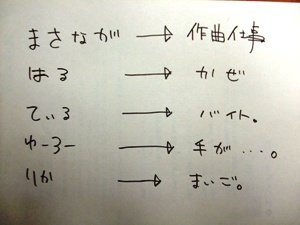 まさなが → 作曲仕事
はる → かぜ
てぃる → バイト。
ゆーろー → 手が…。
りか → まいご。